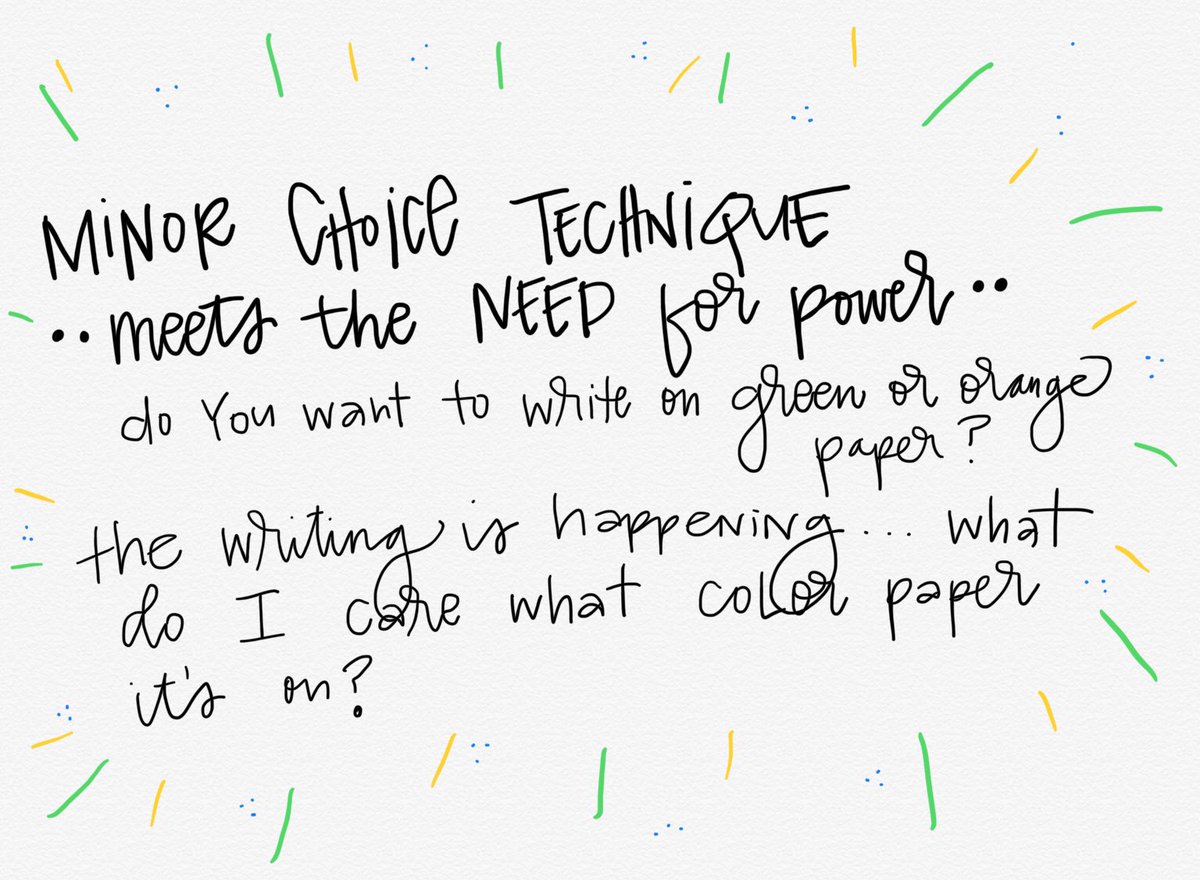 MINOR CHOICE TECHNIQUE
..meets the NEED for power..
do You want to write on green or orange
paper?
the writing is happening... what
do I care what color paper
it's on?